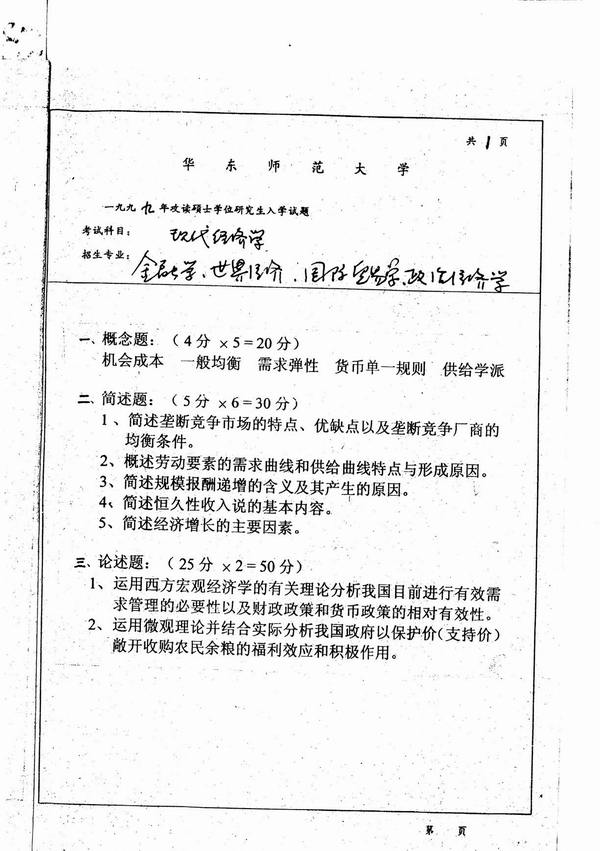 共1页
华东师范大学
一九九九年攻读硕士学位研究生入学试题
考试科目：现代经济学
招生专业：金融学、世界经济、国际贸易学、政治经济学
一、概念题：（4分×5=20分）
机会成本 一般均衡 需求弹性 货币单一规则 供给学派
二、简述题：（5分×6=30分）
1、简述垄断竞争市场的特点、优缺点以及垄断竞争厂商的
均衡条件。
2、概述劳动要素的需求曲线和供给曲线特点与形成原因。
3、简述规模报酬递增的含义及其产生的原因。
4、简述恒久性收入说的基本内容。
5、简述经济增长的主要因素。
三、论述题：（25分×2=50分）
1、运用西方宏观经济学的有关理论分析我国目前进行有效需
求管理的必要性以及财政政策和货币政策的相对有效性。
2、运用微观理论并结合实际分析我国政府以保护价（支持价）
敞开收购农民余粮的福利效应和积极作用。
第 页